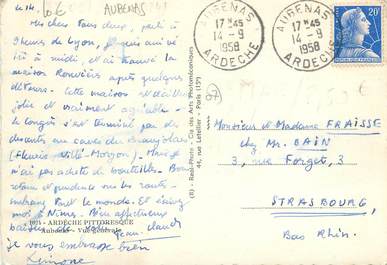 le 14.
AUBENAS
Mes chers Tous deux, parti à
9 heures de Lyon, je suis arrivé
ici à midi, et ai trouvé la
maison Rouvière après quelques
détours. Cette maison est
jolie et vraiment agréable.
Le congrès s'est terminé par des
descentes aux caves du Beaujolais
(Fleurie Villié-Morgon). Mais je
n'ai pas acheté de bouteilles. Bon
retour et prudence sur les routes.
le monde. Et écrivez
moi à Nîmes. Bien affectueux
baisers de
Jean-Claude
1075 - ARDÈCHE PITTORESQUE
Aubenas - Vue Générale
Je vous embrasse bien
Simone
(R) - Real-Photo - Cie des Arts Photomécaniques
44, rue Letellier - Paris (15e)
AUBENAS
17 H 45
14 - 9
1958
ARDECHE
AUBENAS
17 H 45
14 - 9
1958
ARDECHE
20F
Monsieur et Madame FRAISSE
chez Mr. BAIN
3, rue Forget, 3
STRASBOURG
Bas Rhin.